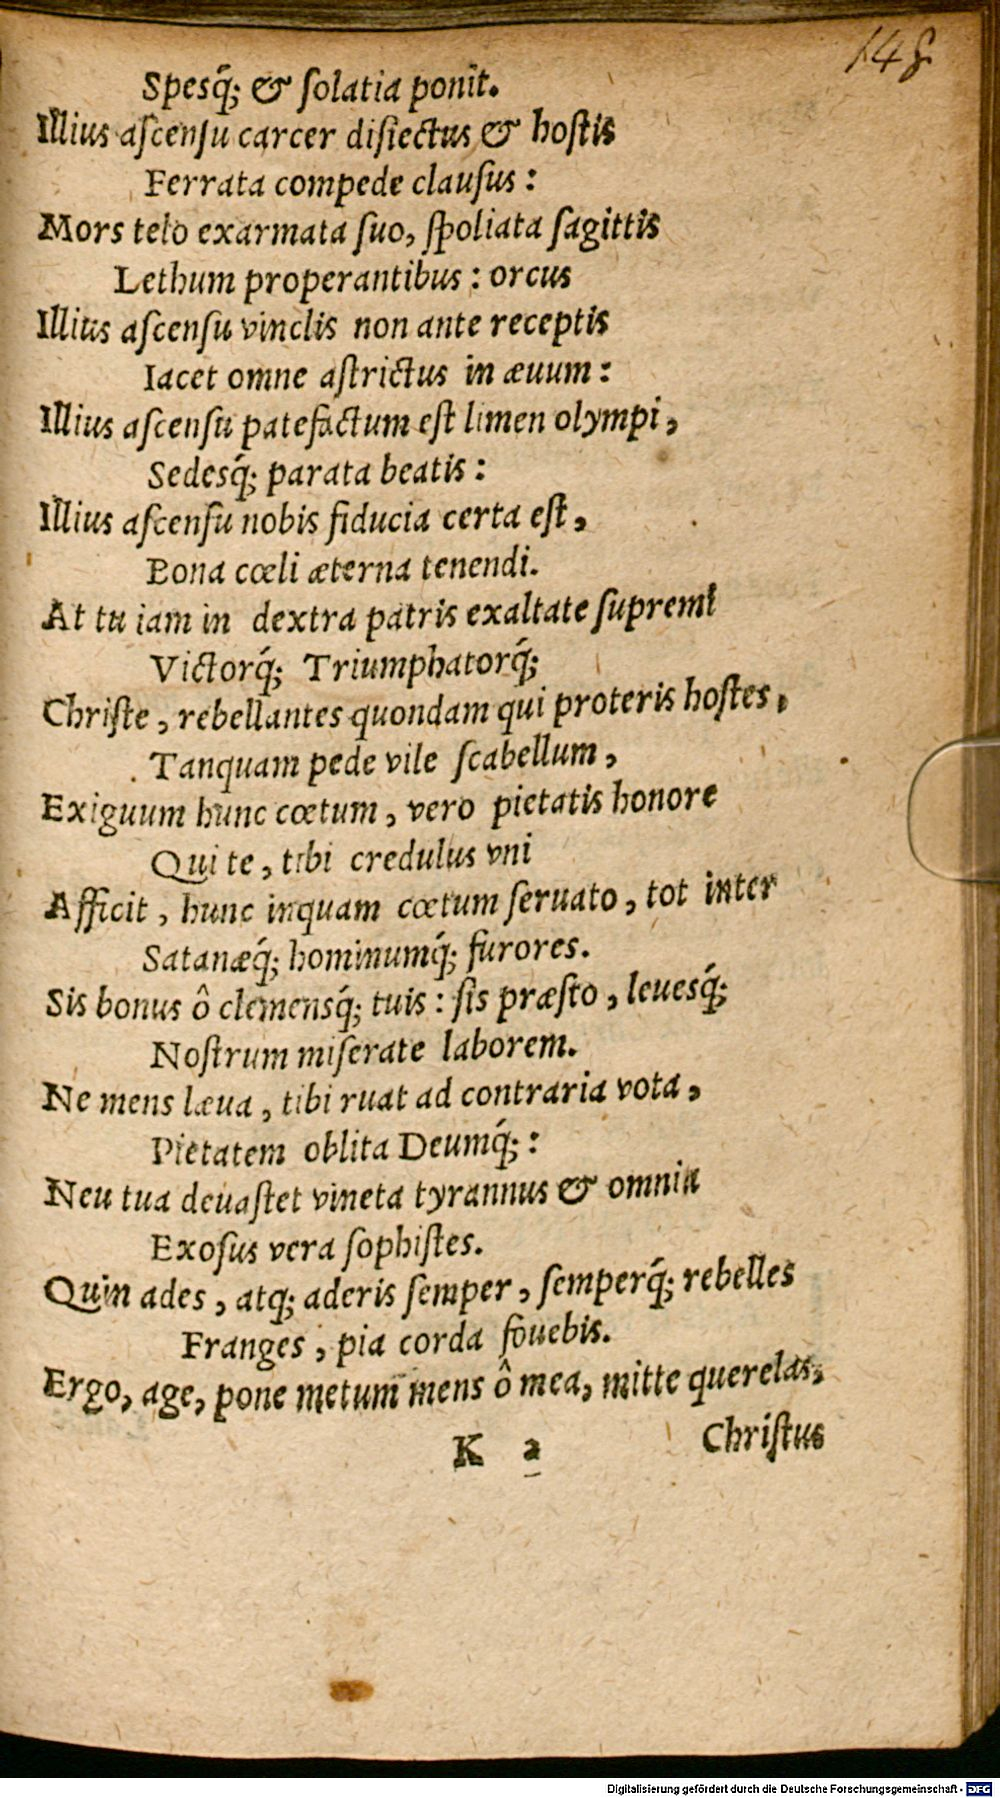 148
Spesq́; & ſolatia ponit.
Illius aſcenſu carcer diſiectus & hoſtis
Ferrata compede clauſus :
Mors telo exarmata ſuo, ſpoliata ſagittis
Lethum properantibus : orcus
Illius aſcenſu vinclis non ante receptis
Iacet omne aſtrictus in æuum :
Illius aſcenſu patefactum eſt limen olympi ,
Sedesq́; parata beatis :
Illius aſcenſu nobis fiducia certa eſt ,
Bona cœli æterna tenendi.
At tu iam in dextra patris exaltate ſupremi
Victorq́; Triumphatorq́;
Chriſte , rebellantes quondam qui proteris hoſtes ,
Tanquam pede vile ſcabellum ,
Exiguum hunc cœtum , vero pietatis honore
Qui te , tibi credulus vni
Afficit , hunc inquam cœtum ſeruato , tot inter
Satanæq́; hominumq́; furores.
Sis bonus ô clemensq́; tuis : ſis præſto , leuesq́;
Noſtrum miſerate laborem.
Ne mens læua , tibi ruat ad contraria vota ,
Pietatem oblita Deumq́; :
Neu tua deuaſtet vineta tyrannus & omnia
Exoſus vera ſophiſtes.
Quin ades , atq; aderis ſemper , ſemperq́; rebelles
Franges , pia corda fouebis.
Ergo, age, pone metum mens ô mea, mitte querelas,
K 2 Chriſtus
Digitalisierung gefördert durch die Deutsche Forschungsgemeinschaft - DFG